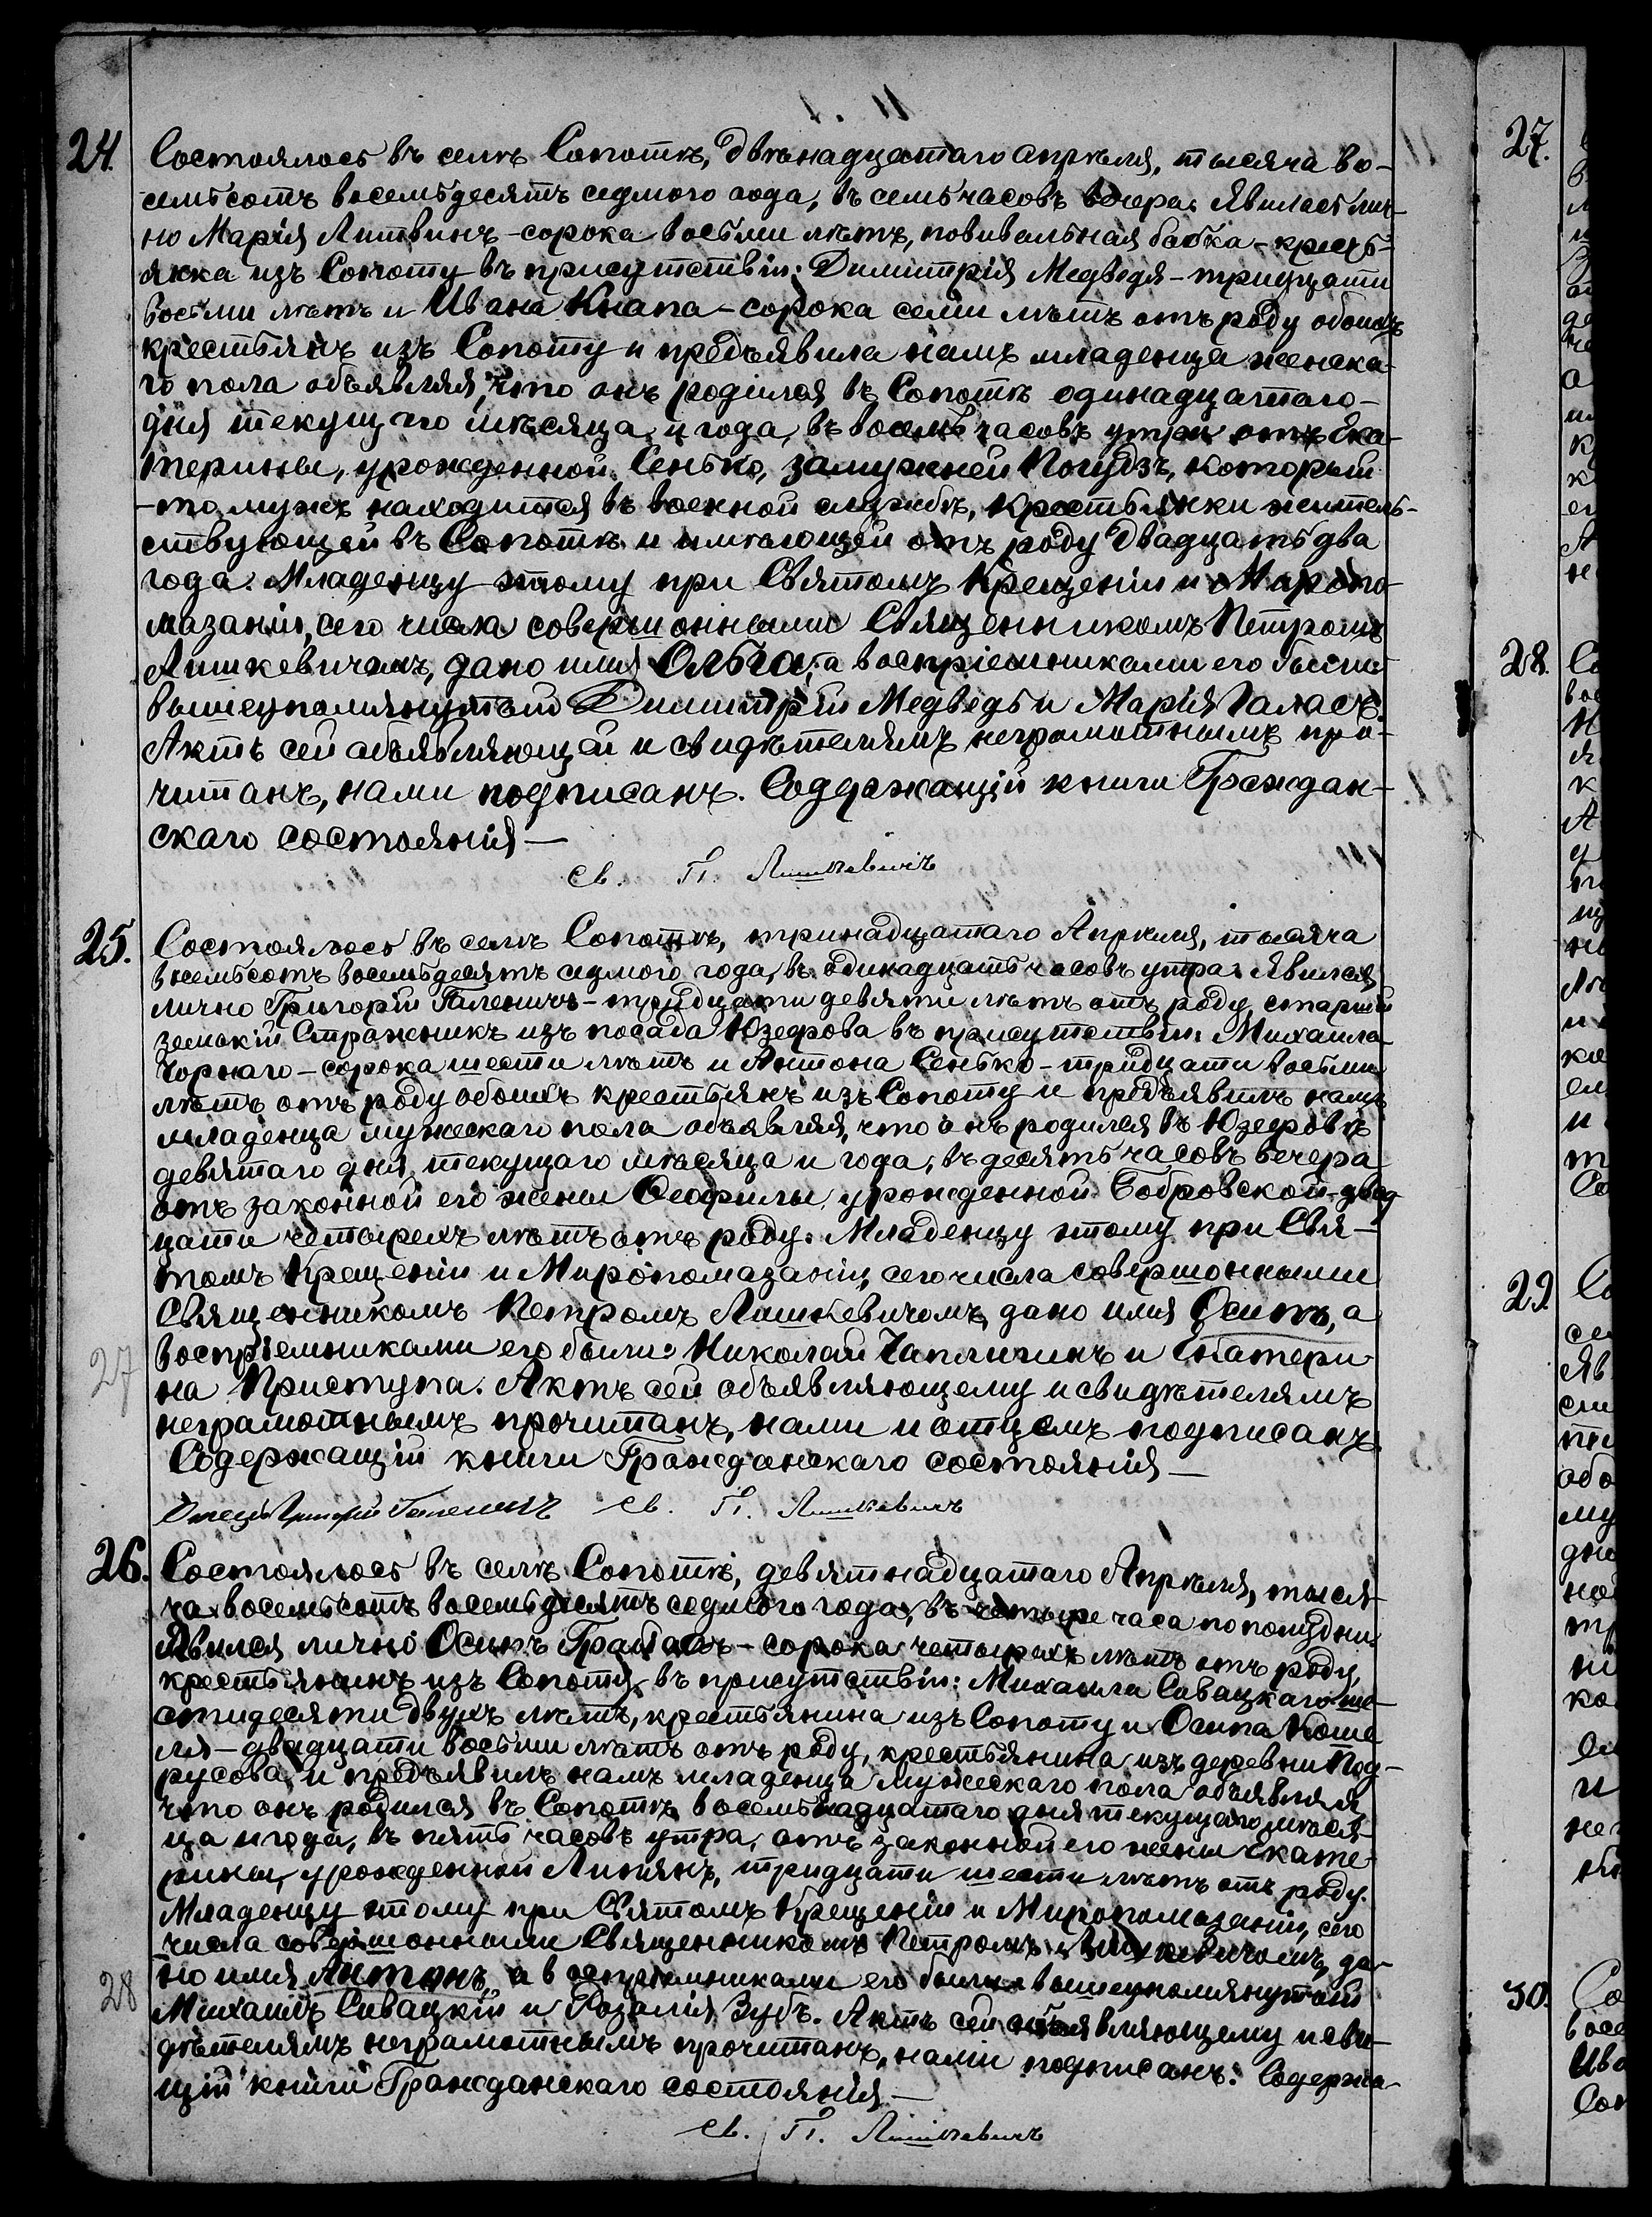 24.
Состоялось въ селѣ Сопотѣ, двѣнадцатаго апрѣля, тысяча во-
семьсотъ восемьдесятъ седмого года, въ семь часовъ вечера. Явилась лич-
но Марія Литвинъ - сорока восьми лѣтъ, повивальная бабка - кресть-
янка изъ Сопоту въ присутствіи: Димитрія Медведя - тридцати
восьми лѣтъ и Ивана Кнапа - сорока семи лѣтъ отъ роду обоихъ
крестьянъ изъ Сопоту и предъявила намъ младенца женска-
го пола объявляя, что онъ родился въ Сопотѣ одинадцатаго
дня текущаго мѣсяца и года, въ восемь часовъ утра отъ Ека-
терины, урожденной Сенько, замужней Погудзъ, которой
-то мужъ находится въ военной службѣ, крестьянки житель-
ствующей въ Сопотѣ и имѣющей отъ роду двадцать два
года. Младенцу этому при Святомъ Крещеніи и Миропо-
мазаніи, сего числа совершонными Священникомъ Петромъ
Лишкевичемъ, дано имя Ольга, а воспріемниками его были
вышеупомянутый Димитрій Медведь и Марія Галасъ.
Актъ сей объявляющей и свидѣтелямъ неграмотнымъ про-
читанъ, нами подписанъ. Содержащій книги Граждан-
скаго состоянія —
Св. П. Лишкевичъ
25.
Состоялось въ селѣ Сопотѣ, тринадцатаго Апрѣля, тысяча
восемьсотъ восемьдесятъ седмого года, въ одинадцать часовъ утра. Явился
лично Григорій Галеничъ - тридцати девяти лѣтъ отъ роду, старшій
земскій Стражникъ изъ посада Юзефова въ присутствіи: Михаила
Чорнаго - сорока шести лѣтъ и Антона Сенько - тридцати восьми
лѣтъ отъ роду обоихъ крестьянъ изъ Сопоту и предъявилъ намъ
младенца мужескаго пола объявляя, что онъ родился въ Юзефовѣ
девятаго дня текущаго мѣсяца и года, въ десять часовъ вечера
отъ законной его жены Ѳеофилы, урожденной Бобровской - двад-
цати четырехъ лѣтъ отъ роду. Младенцу этому при Свя-
томъ Крещеніи и Миропомазаніи, сего числа совершонными
Священникомъ Петромъ Лишкевичомъ, дано имя Осипъ, а
воспріемниками его были: Николай Чаплигинъ и Екатери-
27
на Приступа. Актъ сей объявляющему и свидѣтелямъ
неграмотнымъ прочитанъ, нами и отцемъ подписанъ.
Содержащій книги Гражданскаго состоянія —
Отецъ Григорій Галеничъ Св. П. Лишкевичъ
26.
Состоялось въ селѣ Сопотѣ, девятнадцатаго Апрѣля, тыся-
ча восемьсотъ восемьдесятъ седмого года, въ четыре часа пополудни.
Явился лично Осипъ Грабасъ - сорока четырехъ лѣтъ отъ роду,
крестьянинъ изъ Сопоту, въ присутствіи: Михаила Сивацкаго ше-
стидесяти двухъ лѣтъ, крестьянина изъ Сопоту и Осипа Коше
ля - двадцати восьми лѣтъ отъ роду, крестьянина изъ деревни Под-
русова, и предъявилъ намъ младенца мужескаго пола объявляя
что онъ родился въ Сопотѣ восемьнадцатаго дня текущаго мѣся-
ца и года, въ пять часовъ утра, отъ законной его жены Екате-
рины, урожденной Липянъ, тридцати шести лѣтъ отъ роду.
Младенцу этому при Святомъ Крещеніи и Миропомазаніи, сего
числа совершонными Священникомъ Петромъ Лишкевичомъ, да-
28
но имя Антонъ, а воспріемниками его были вышеупомянутый
Михаилъ Сивацкій и Розалія Зубъ. Актъ сей объявляющему и сви-
дѣтелямъ неграмотнымъ прочитанъ, нами подписанъ. Содержа-
щій книги Гражданскаго состоянія —
Св. П. Лишкевичъ
27.
28.
29.
30.